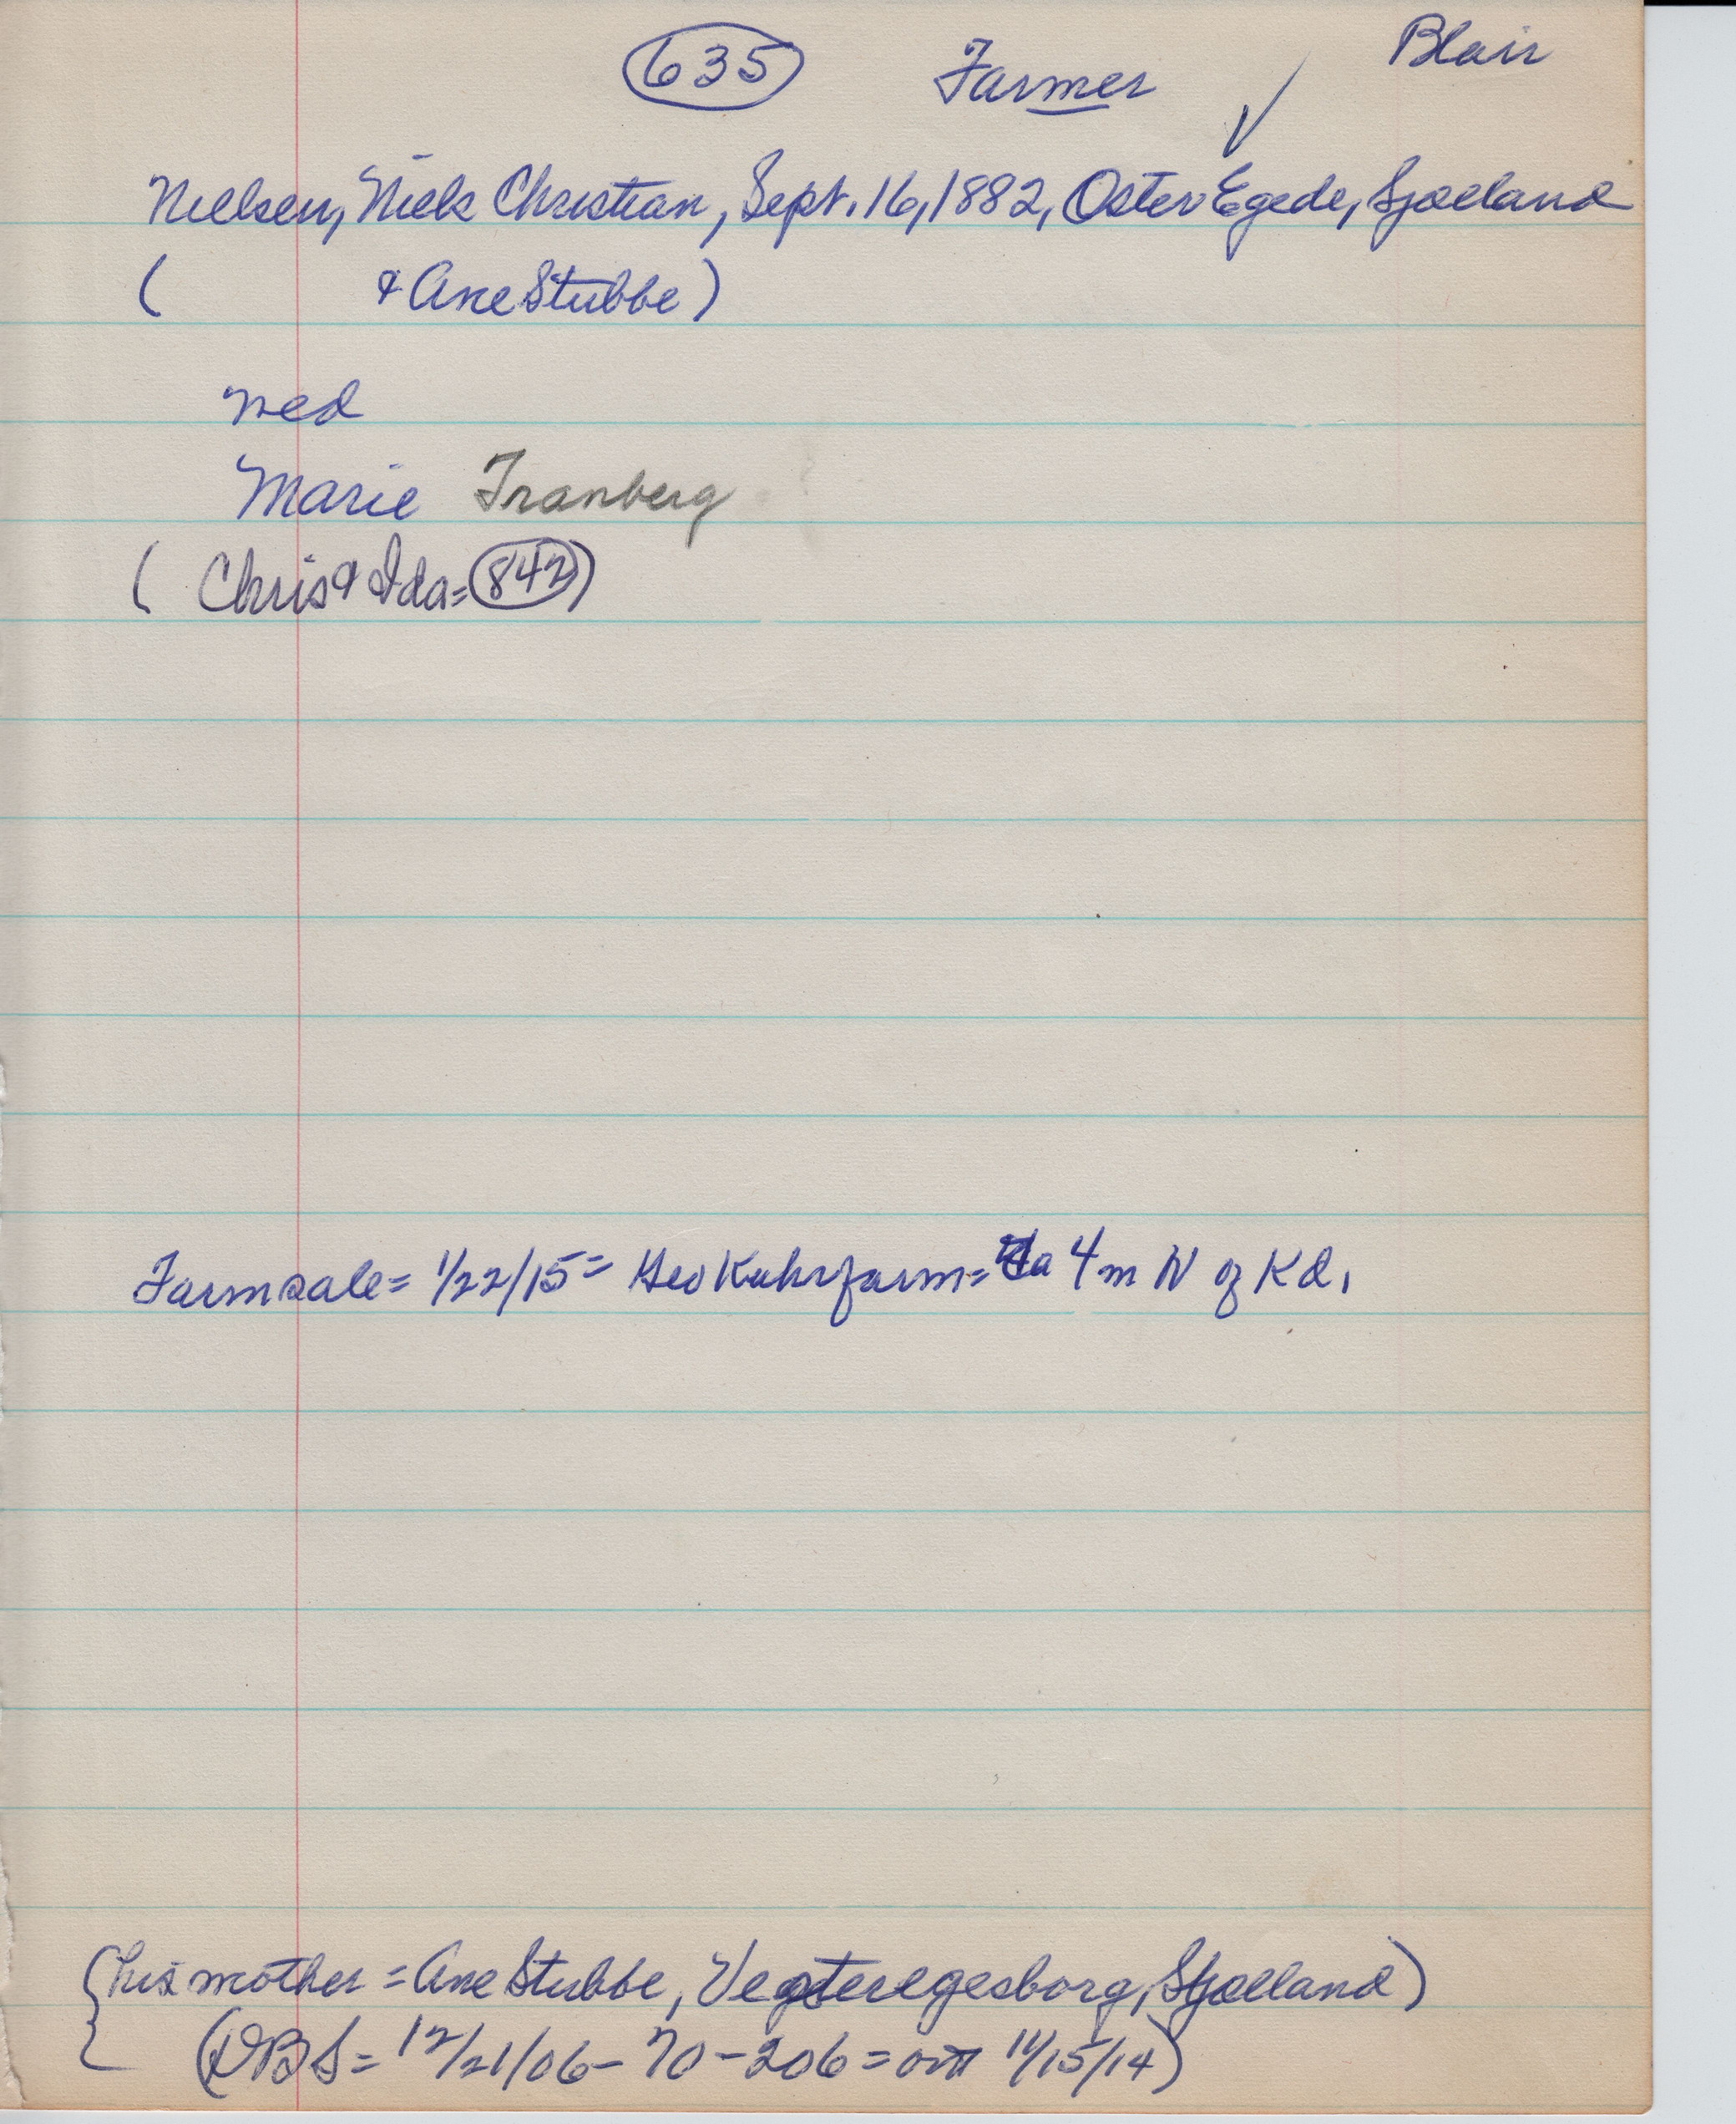 635 Farmer ✓ Blair
Nielsen, Niels Christian, Sept. 16, 1882, Oster Egede, Sjoelland
( & Ane Stubbe)
med
Marie Tranberg
( Chris & Ida = 842)
Farmsale = 1/22/15 = Geo Kuhr farm = ca 4 m N of Kd.
(his mother = Ane Stubbe, Vesteregesborg, Sjoelland)
(DBS = 12/21/06 - 70 - 206 = om 11/15/14)